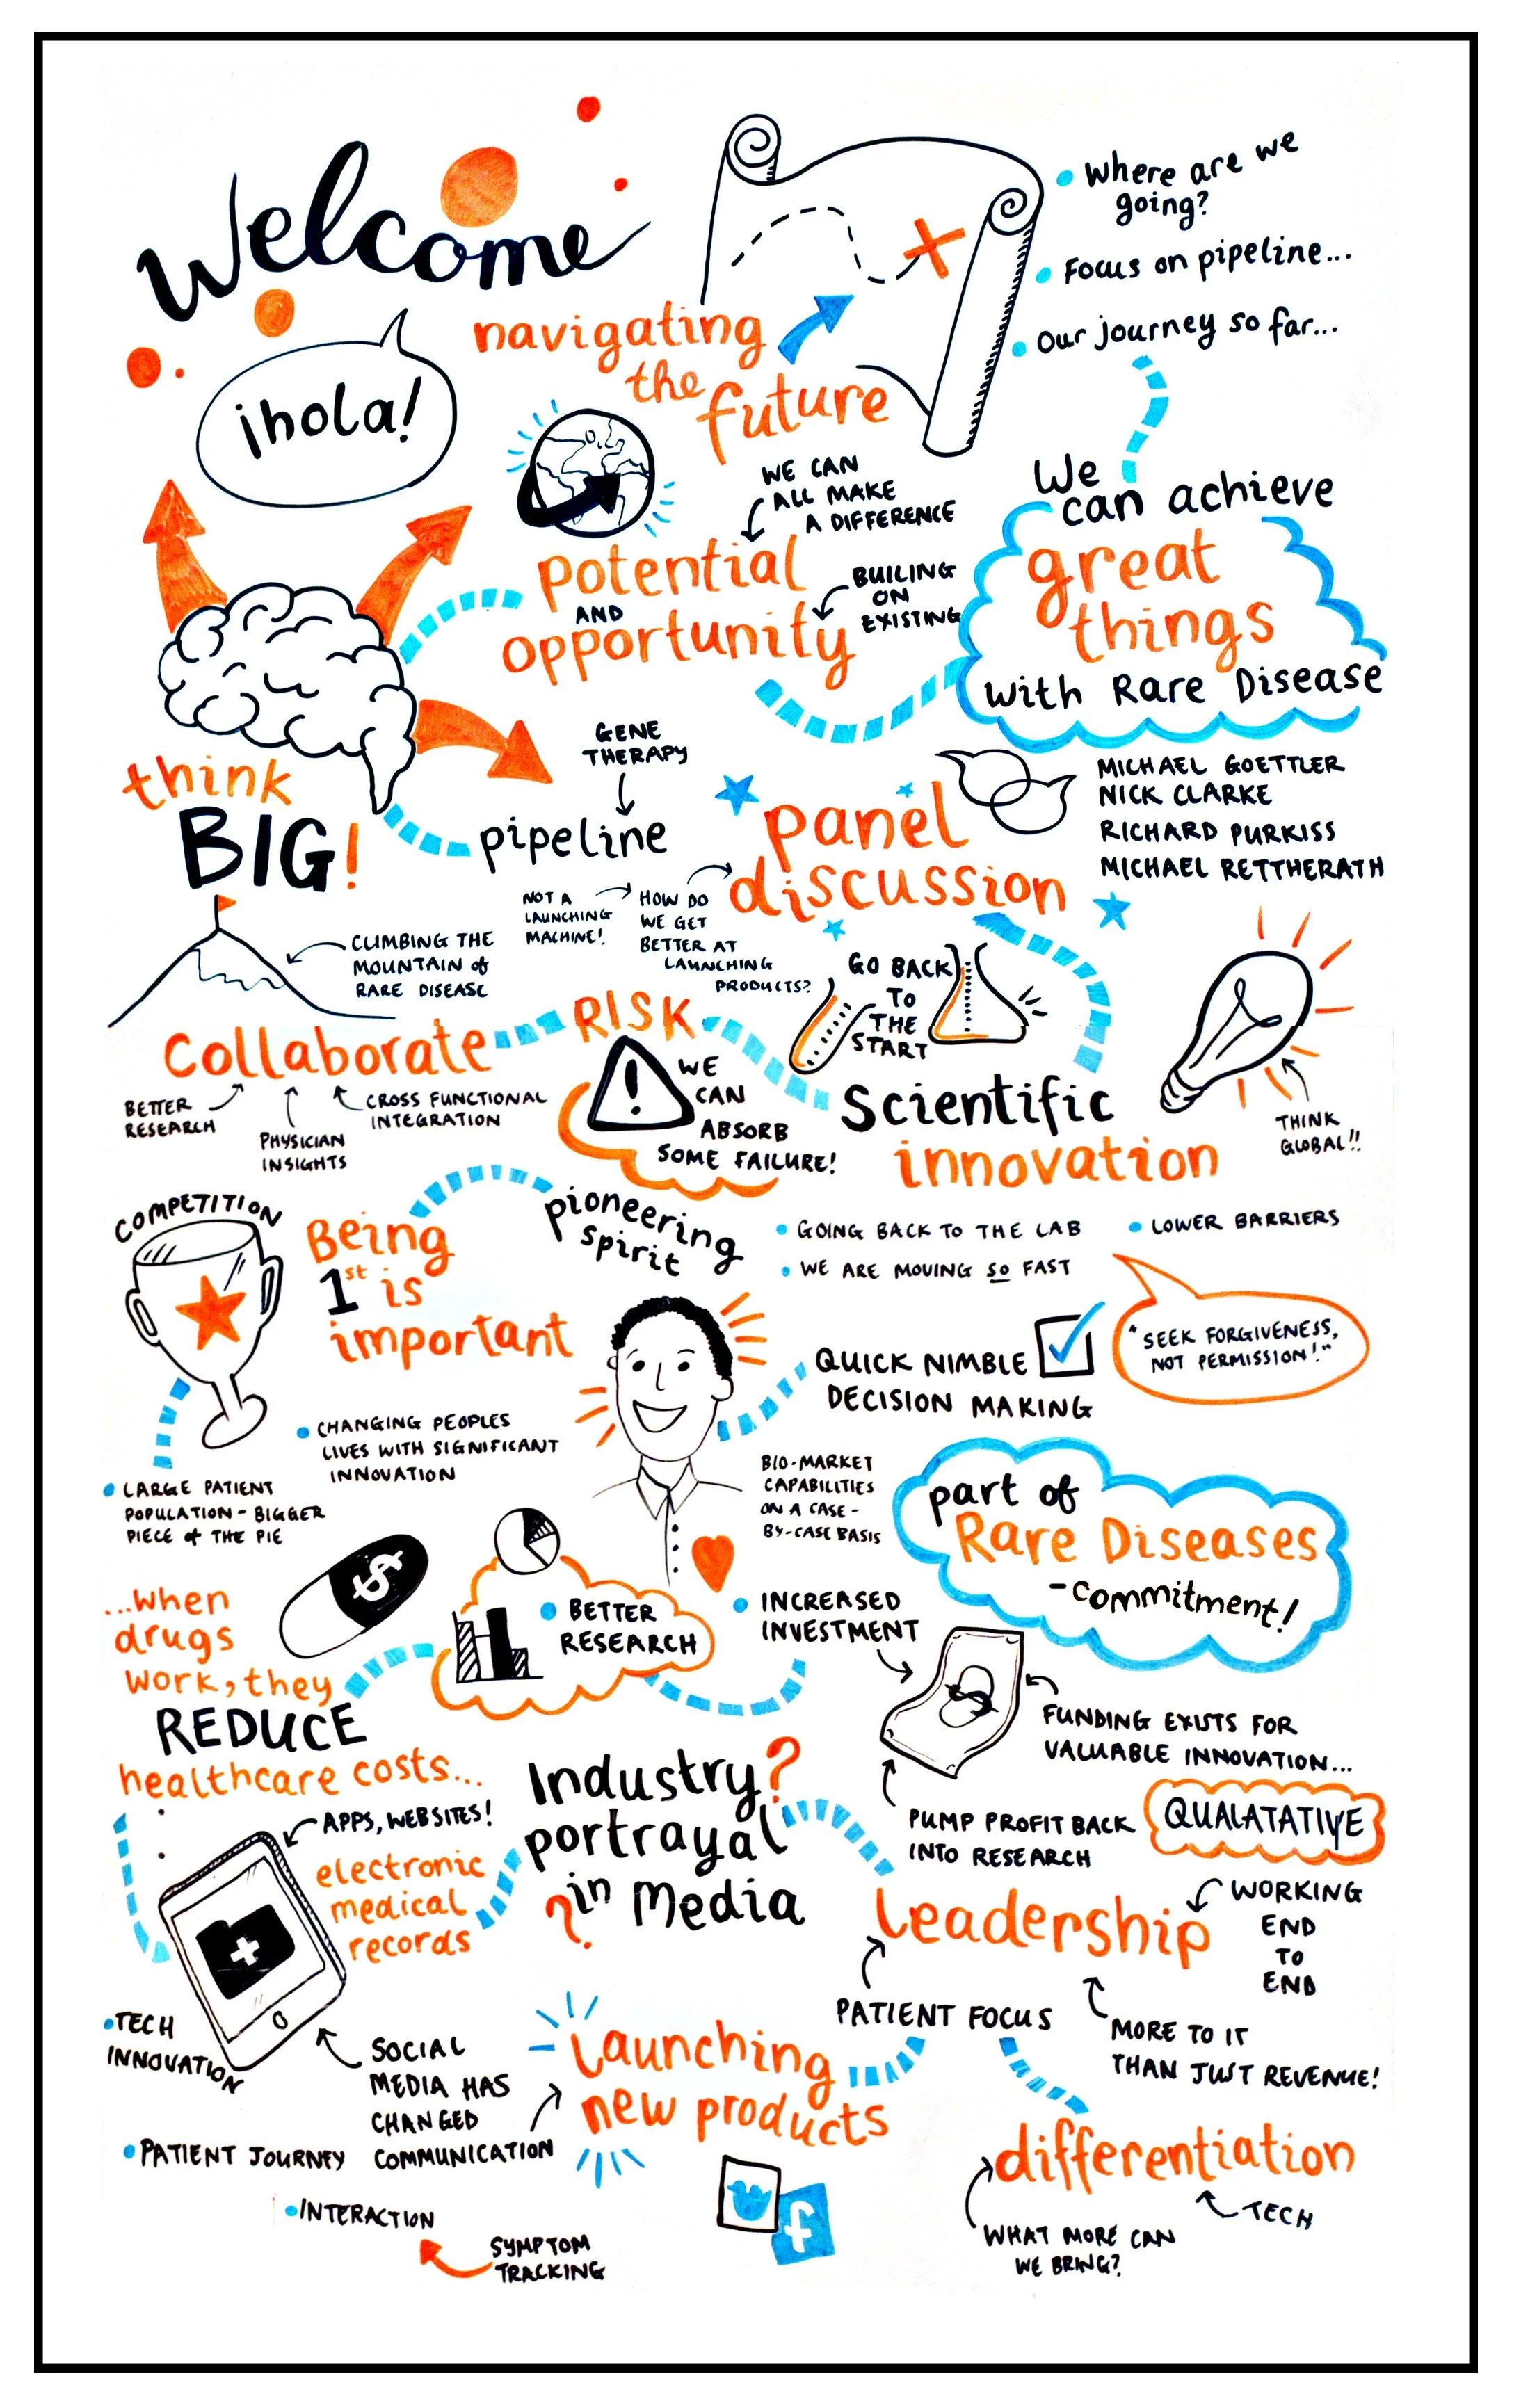 Welcome
¡hola!
navigating
the
future
Where are we
going?
Focus on pipeline...
Our journey so far...
WE CAN
ALL MAKE
A DIFFERENCE
potential
AND
opportunity
BUILING
ON
EXISTING
We
can achieve
great
things
with Rare Disease
think
BIG!
GENE
THERAPY
pipeline
panel
discussion
MICHAEL GOETTLER
NICK CLARKE
RICHARD PURKISS
MICHAEL RETTHERATH
NOT A
LAUNCHING
MACHINE!
HOW DO
WE GET
BETTER AT
LAUNCHING
PRODUCTS?
CLIMBING THE
MOUNTAIN of
RARE DISEASE
Collaborate
BETTER
RESEARCH
PHYSICIAN
INSIGHTS
CROSS FUNCTIONAL
INTEGRATION
RISK
!
WE
CAN
ABSORB
SOME FAILURE!
GO BACK
TO
THE
START
Scientific
innovation
THINK
GLOBAL!!
GOING BACK TO THE LAB
LOWER BARRIERS
WE ARE MOVING SO FAST
COMPETITION
Being
1st is
important
pioneering
spirit
QUICK NIMBLE
DECISION MAKING
"SEEK FORGIVENESS,
NOT PERMISSION!"
CHANGING PEOPLES
LIVES WITH SIGNIFICANT
INNOVATION
LARGE PATIENT
POPULATION - BIGGER
PIECE of THE PIE
BIO-MARKET
CAPABILITIES
ON A CASE-
BY-CASE BASIS
part of
Rare Diseases
- commitment!
...when
drugs
work, they
REDUCE
healthcare costs...
$
BETTER
RESEARCH
INCREASED
INVESTMENT
$
FUNDING EXISTS FOR
VALUABLE INNOVATION...
PUMP PROFIT BACK
INTO RESEARCH
QUALATATIVE
Industry?
portrayal
in Media
?
APPS, WEBSITES!
electronic
medical
records
Leadership
WORKING
END
TO
END
PATIENT FOCUS
MORE TO IT
THAN JUST REVENUE!
TECH
INNOVATION
SOCIAL
MEDIA HAS
CHANGED
COMMUNICATION
PATIENT JOURNEY
INTERACTION
SYMPTOM
TRACKING
Launching
new products
f
differentiation
TECH
WHAT MORE CAN
WE BRING?